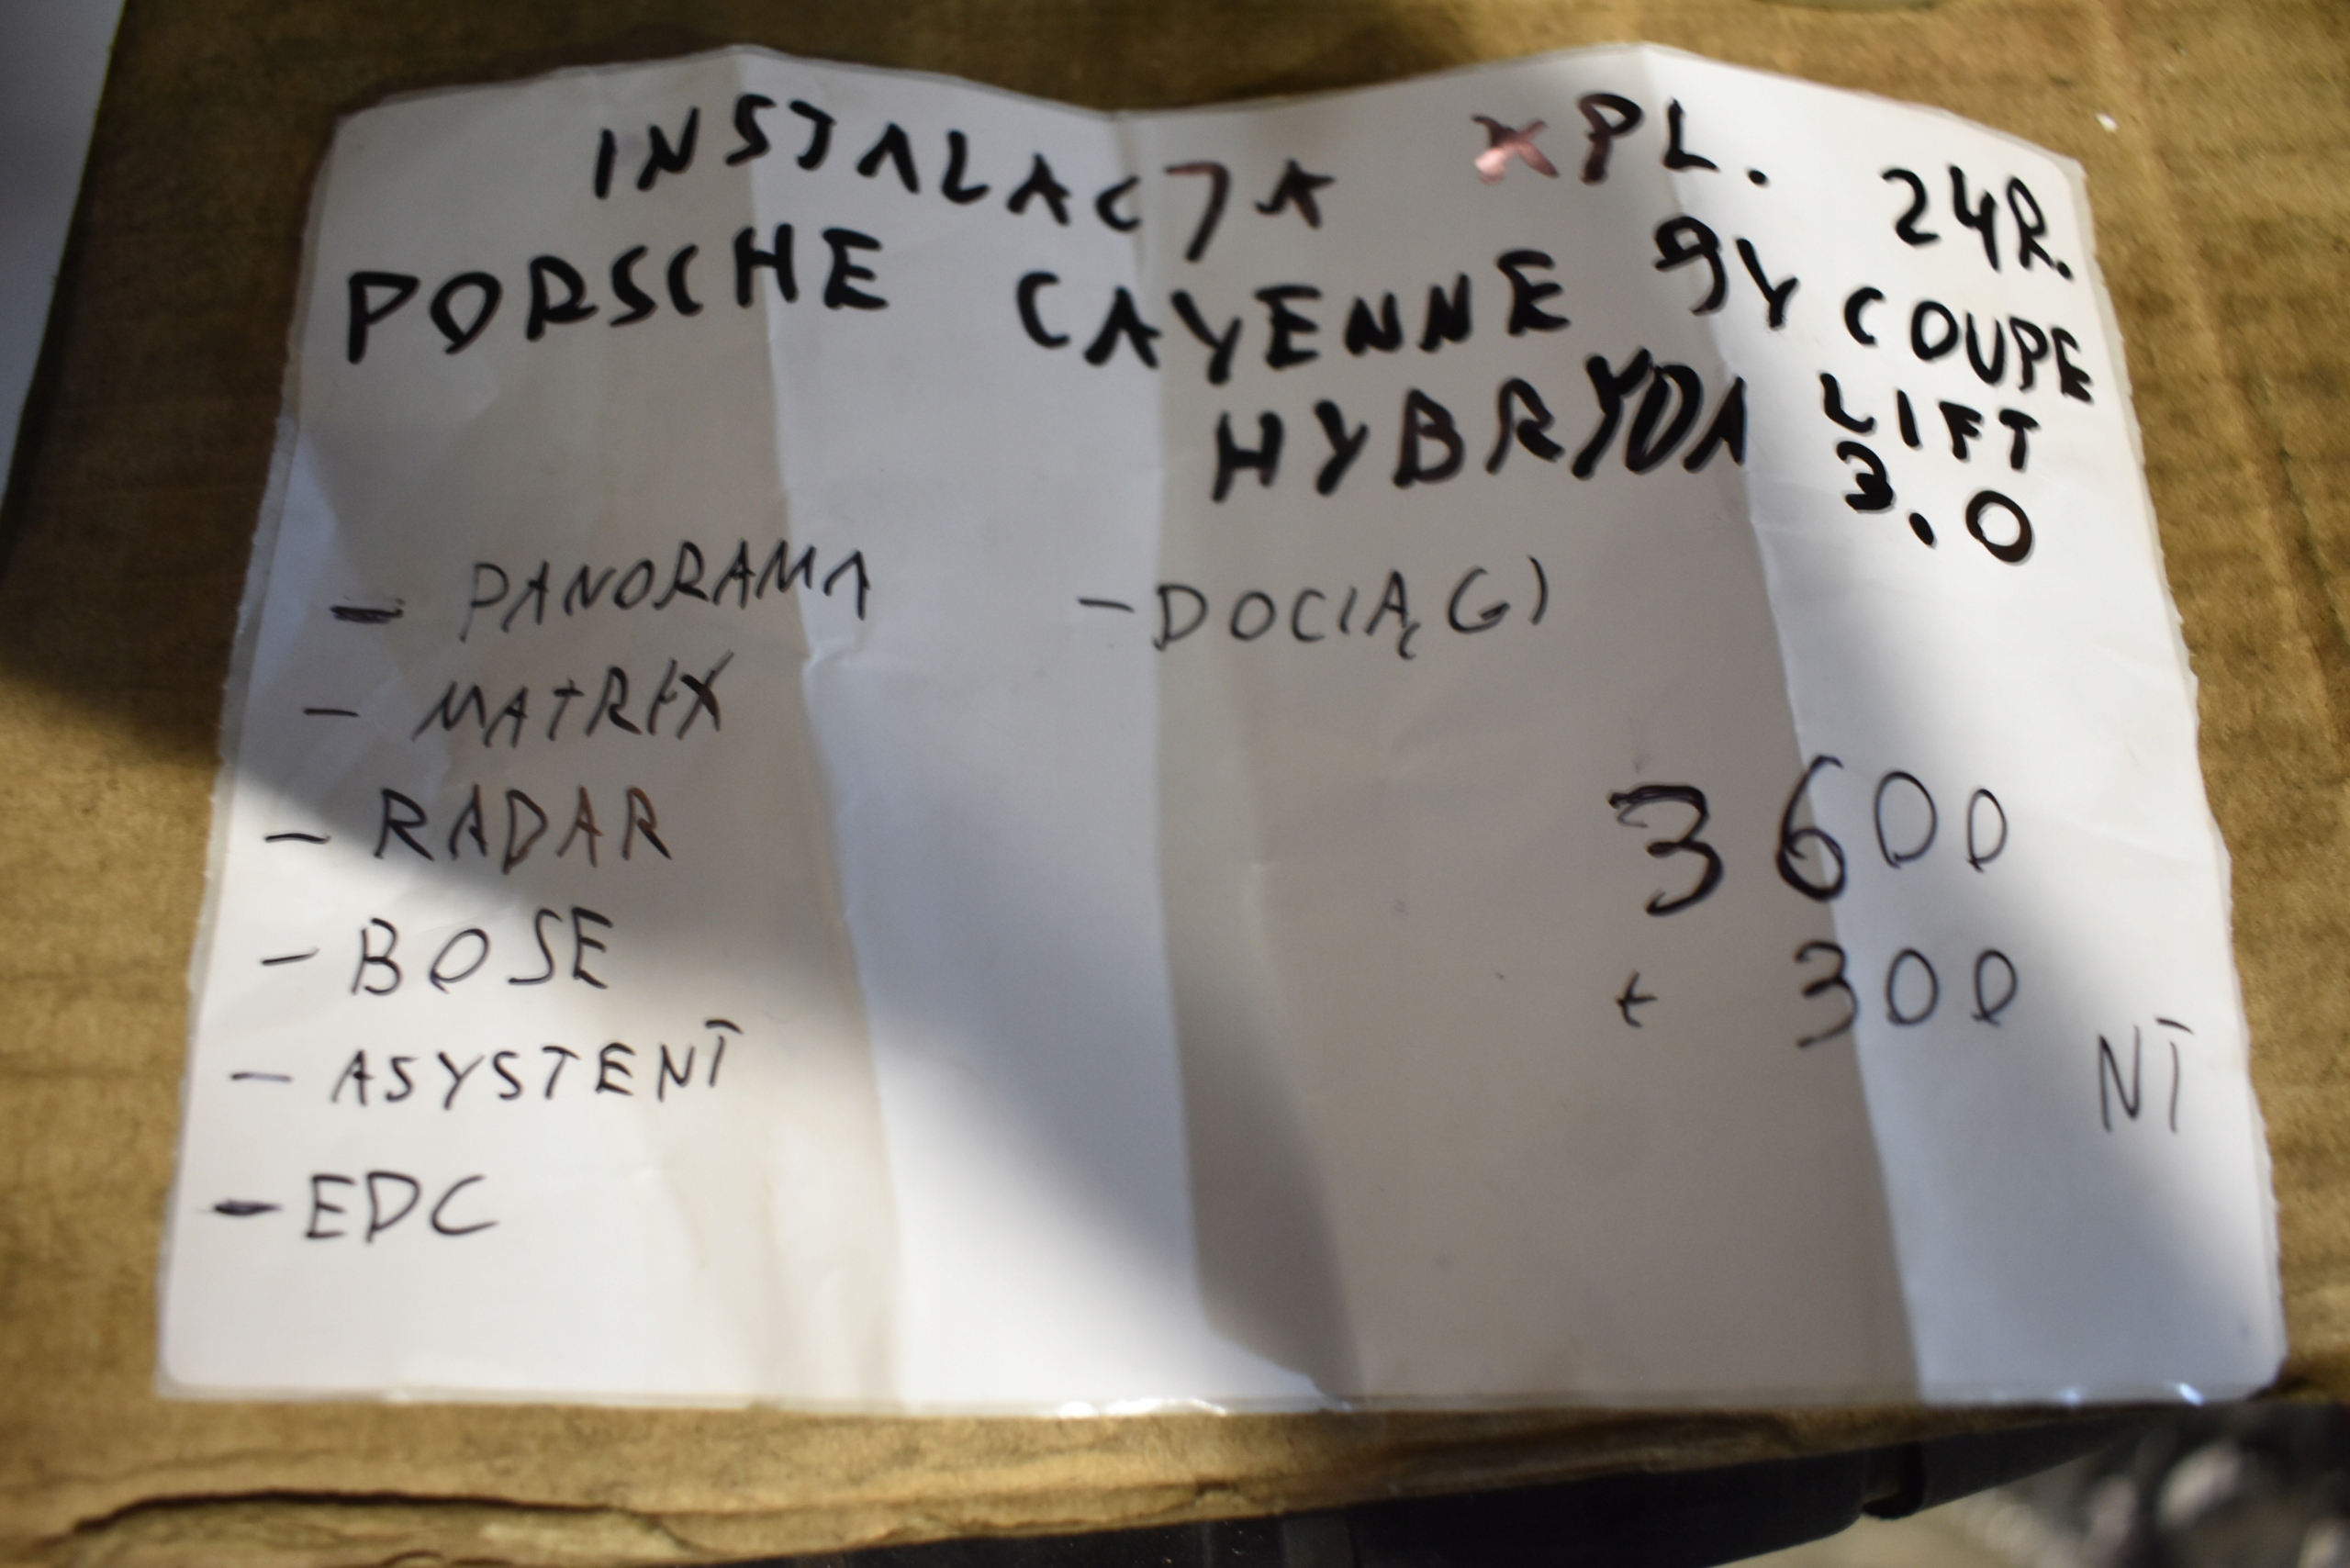 INSTALACJA KPL. 24R.
PORSCHE CAYENNE 9Y COUPE
HYBRYDA LIFT
3.0
- PANORAMA - DOCIĄG)
- MATRIX
- RADAR
3600
- BOSE
+ 300
- ASYSTENT
NT
- EDC